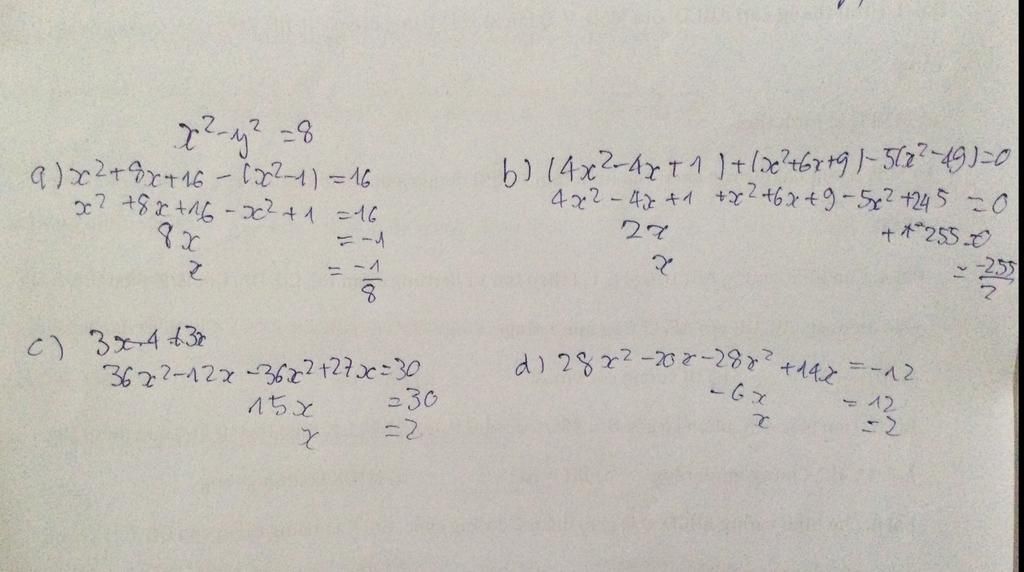 x²-y² =8
a) x²+8x+16 - (x²-1) =16
x² +8x+16 -x²+1 =16
8x = -1
x = -1/8
b) (4x²-4x+1)+(x²+6x+9)-5(x²-49)=0
4x²-4x+1 +x²+6x+9-5x²+245 =0
2x +255=0
x = -255/2
c) 3x-4+3x
36x²-12x-36x²+27x=30
15x =30
x =2
d) 28x²-20x-28x²+14x =-12
-6x =-12
x =2